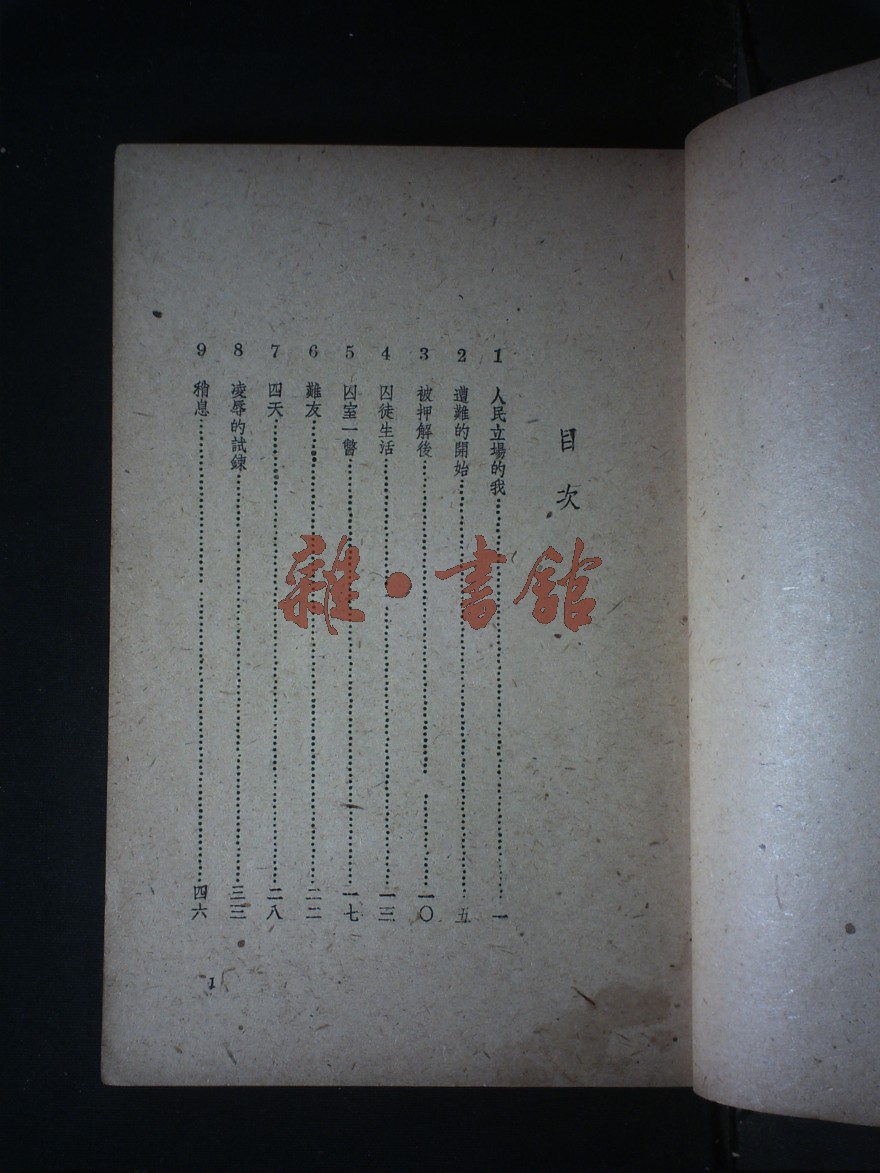 目次
1 人民立場的我……一
2 遭難的開始……五
3 被押解後……一〇
4 囚徒生活……一三
5 囚室一瞥……一七
6 難友……二二
7 四天……二八
8 凌辱的試鍊……三三
9 稍息……四六
1
雜·書館